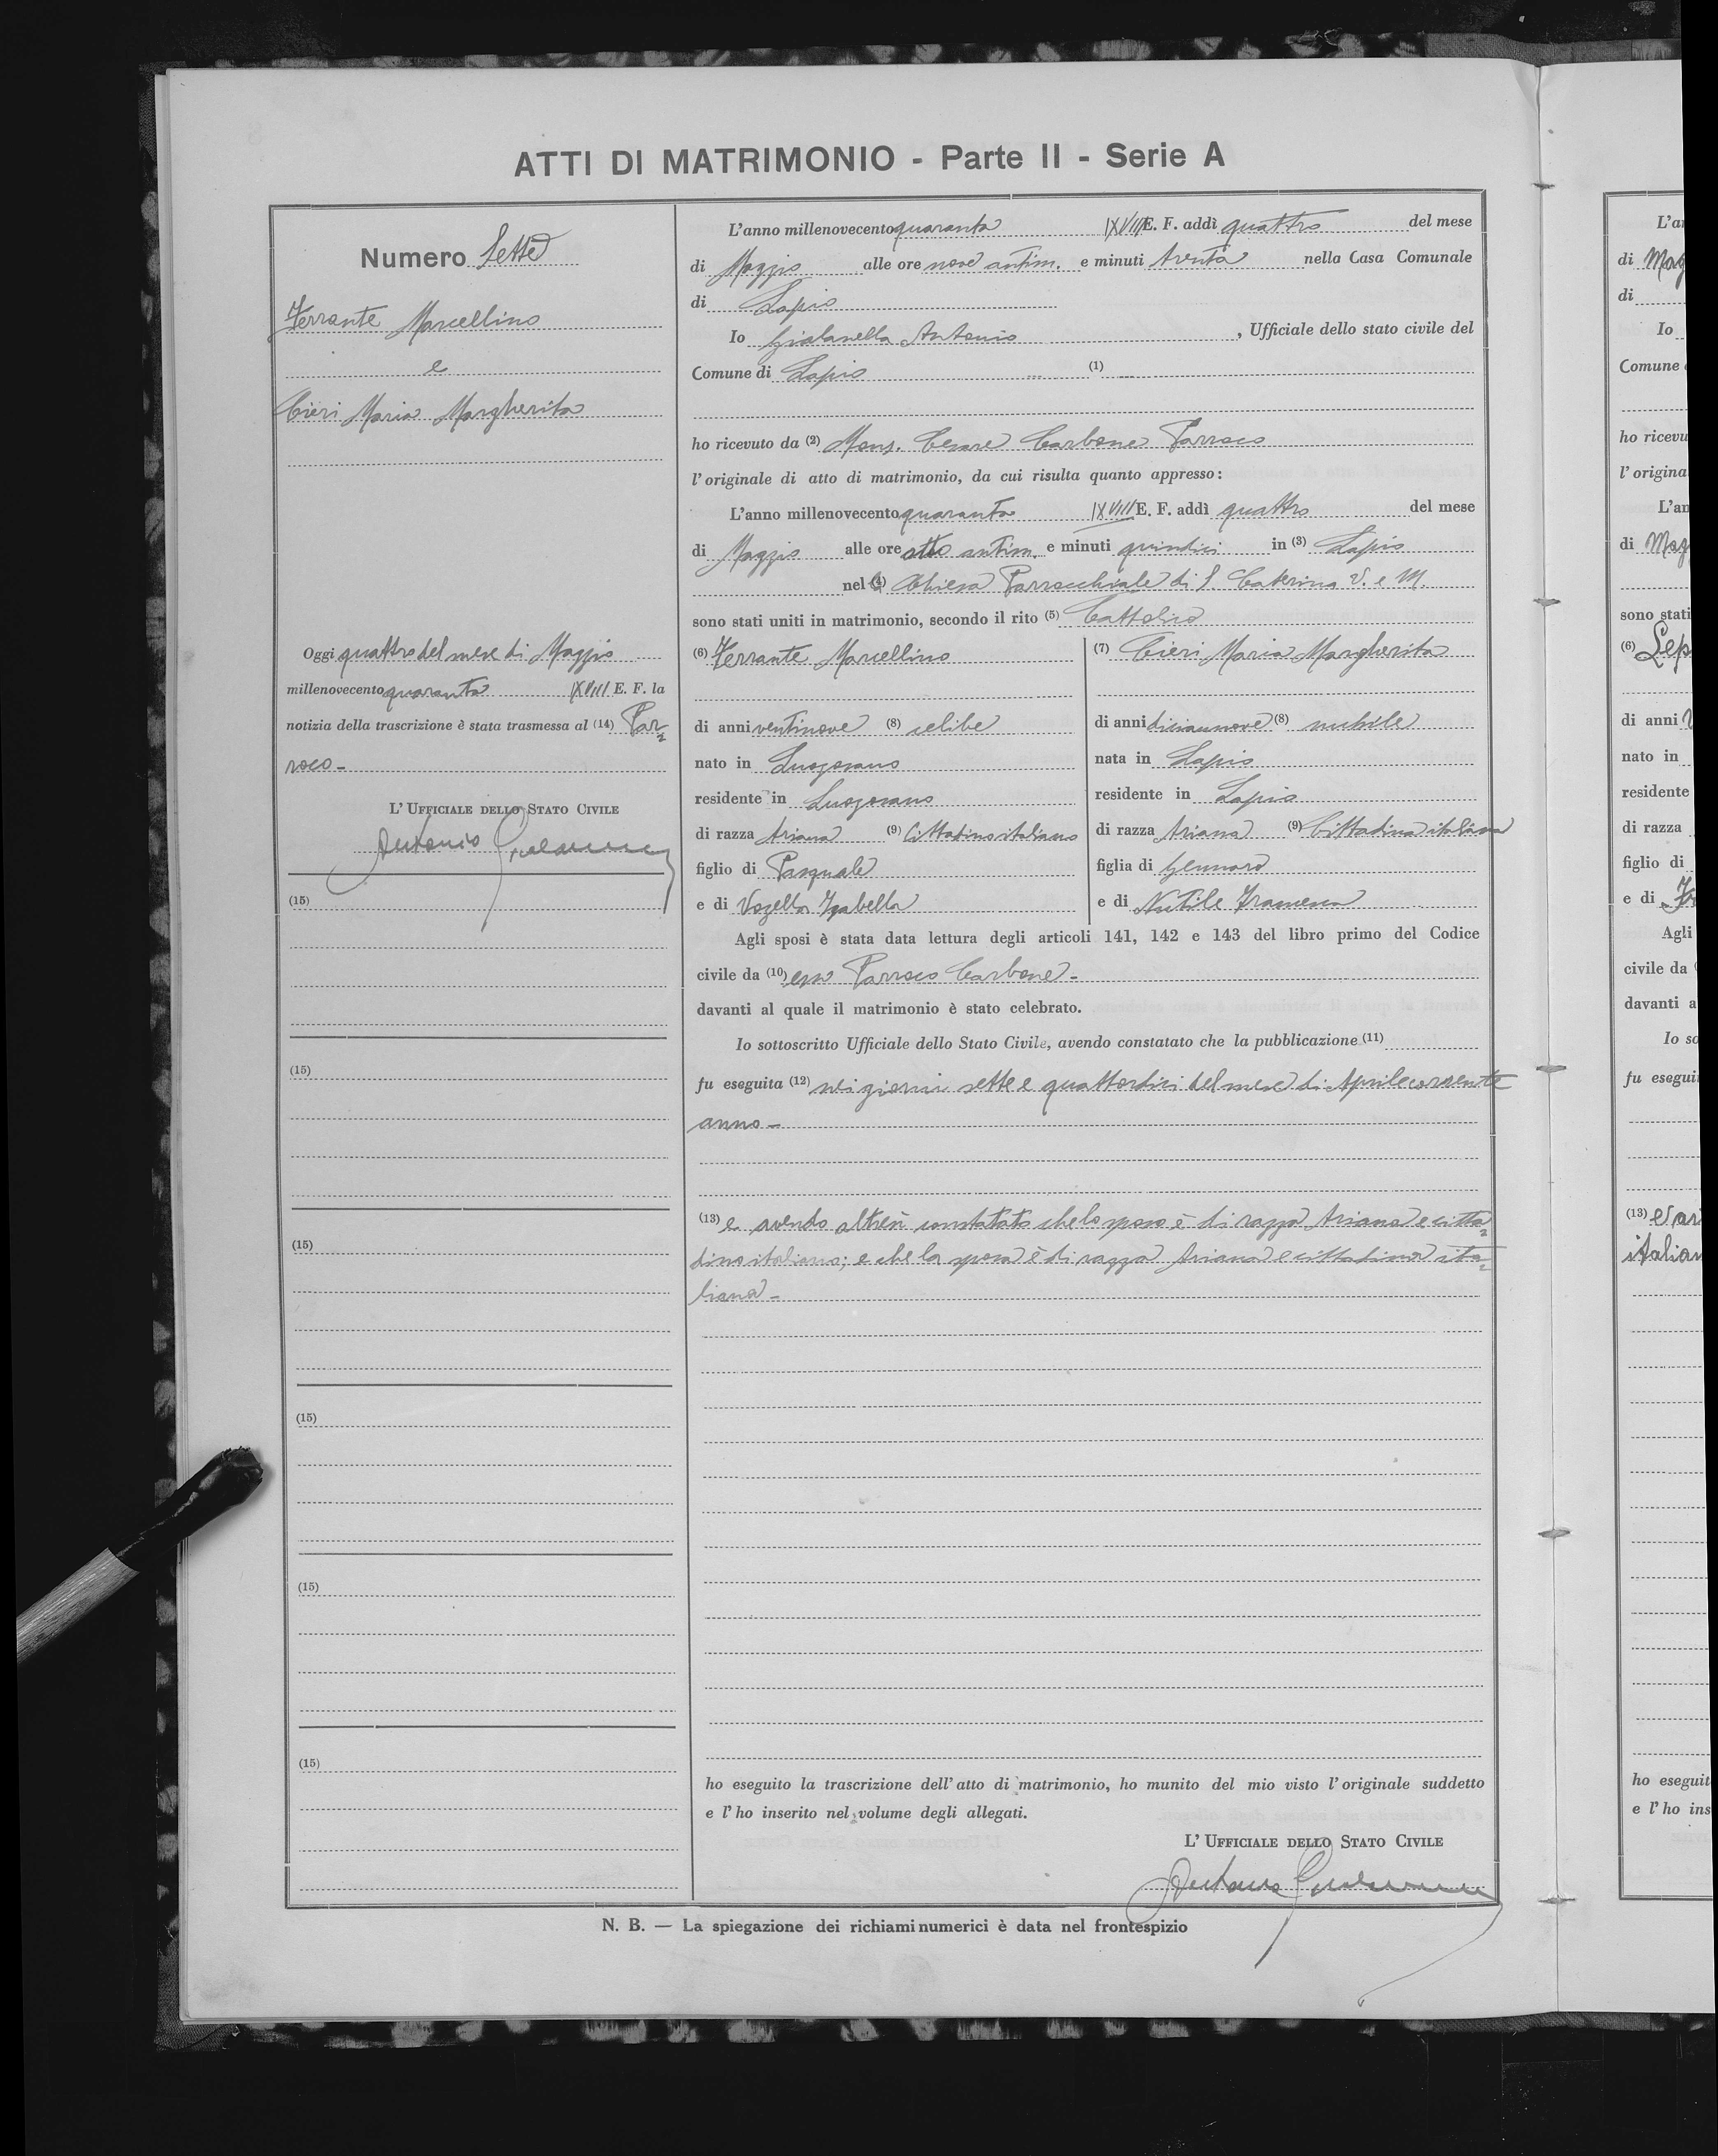 ATTI DI MATRIMONIO - Parte II - Serie A
Numero Sette
Ferrante Marcellino
e
Cieri Maria Margherita
Oggi quattro del mese di Maggio
millenovecento quaranta XVIII E. F. la
notizia della trascrizione è stata trasmessa al (14) Par=
roco -
L' UFFICIALE DELLO STATO CIVILE
Antonio
(15)
(15)
(15)
(15)
(15)
(15)
L'anno millenovecento quaranta XVIII E. F. addì quattro del mese
di Maggio alle ore nove antim. e minuti trenta nella Casa Comunale
di Lapio
Io Gialanella Antonio, Ufficiale dello stato civile del
Comune di Lapio (1)
ho ricevuto da (2) Mons. Cesare Carbone Parroco
l'originale di atto di matrimonio, da cui risulta quanto appresso:
L'anno millenovecento quaranta XVIII E. F. addì quattro del mese
di Maggio alle ore otto antim. e minuti quindici in (3) Lapio
nel (4) Chiesa Parrocchiale di S. Caterina V. e M.
sono stati uniti in matrimonio, secondo il rito (5) Cattolico
(6) Ferrante Marcellino
di anni ventinove (8) celibe
nato in Luogosano
residente in Luogosano
di razza Ariana (9) Cittadino italiano
figlio di Pasquale
e di Vozella Isabella
(7) Cieri Maria Margherita
di anni diciannove (8) nubile
nata in Lapio
residente in Lapio
di razza Ariana (9) Cittadina italiana
figlia di Gennaro
e di Nutile Francesca
Agli sposi è stata data lettura degli articoli 141, 142 e 143 del libro primo del Codice
civile da (10) esso Parroco Carbone -
davanti al quale il matrimonio è stato celebrato.
Io sottoscritto Ufficiale dello Stato Civile, avendo constatato che la pubblicazione (11)
fu eseguita (12) nei giorni sette e quattordici del mese di Aprile corrente
anno -
(13) e avendo altresì constatato che lo sposo è di razza Ariana e citta=
dino italiano; e che la sposa è di razza Ariana e cittadina ita=
liana -
ho eseguito la trascrizione dell'atto di matrimonio, ho munito del mio visto l'originale suddetto
e l'ho inserito nel volume degli allegati.
L' UFFICIALE DELLO STATO CIVILE
Antonio
N. B. — La spiegazione dei richiami numerici è data nel frontespizio
di
Io
Comune
di
(6)
di anni
nato in
residente
di razza
figlio di
e di
Agli
civile da
davanti a
(13)